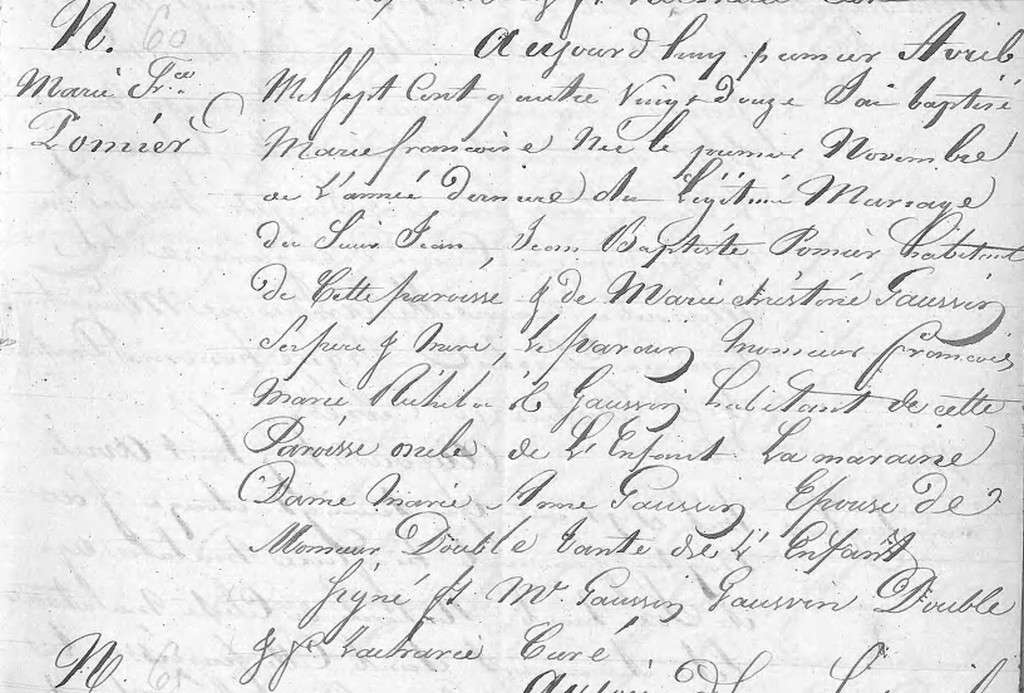 N. 60
Marie Fr.ce
Pomier
Aujourd huy premier Avril
Mil sept Cent quatre Vingt douze J'ai baptisé
Marie francoise Née le premier Novembre
de L'année derniere du Légitime Mariage
du Sieur Jean Jean Baptiste Pomier habitant
de Cette paroisse & de Marie Gaussin
Ses pere & mere, Le parain Monsieur francois
Marie de Gaussin habitant de cette
Paroisse oncle de L'Enfant La maraine
Dame Marie Anne Gaussin Epouse de
Monsieur Double tante de L'Enfant
signé ft Mr. Gaussin Gaussin Double
& fr. Curé
N.